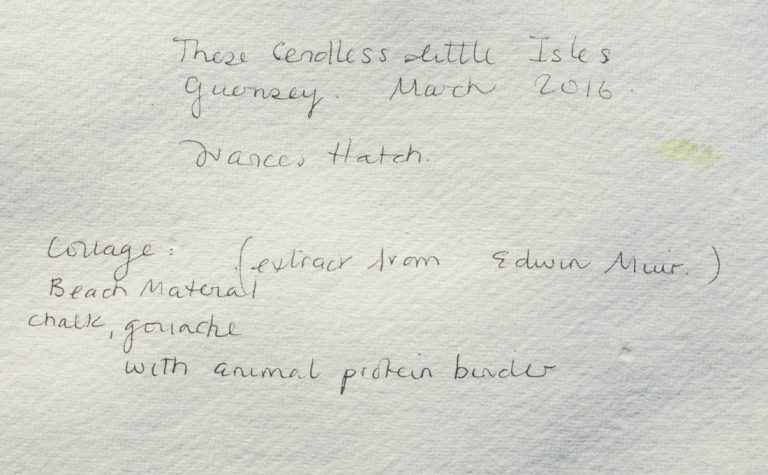 These Cendless little Isles
Guernsey. March 2016.
Frances Hatch.
Collage: (extract from Edwin Muir.)
Beach Material
chalk, gouache
with animal protein binder